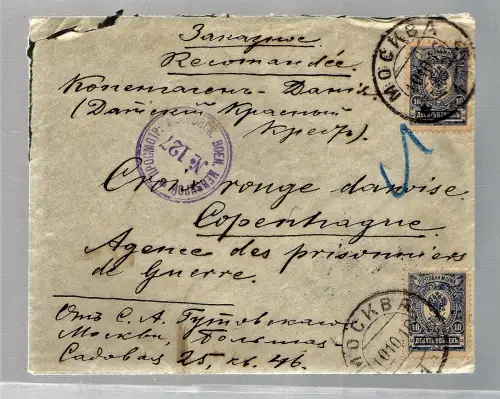 Заказное
Recomandée
Копенгаген - Данія
(Датскій Красный
Крестъ)
Croix rouge danoise
Copenhague
Agence des prisonniers
de Guerre.
Отъ С. А. Гутовскаго
Москва, Большая
Садовая 25, кв. 46.
МОСКВА
10
10
№ 127
ВОЕН. ЦЕНЗУРОЙ
МОСКВА
10
10